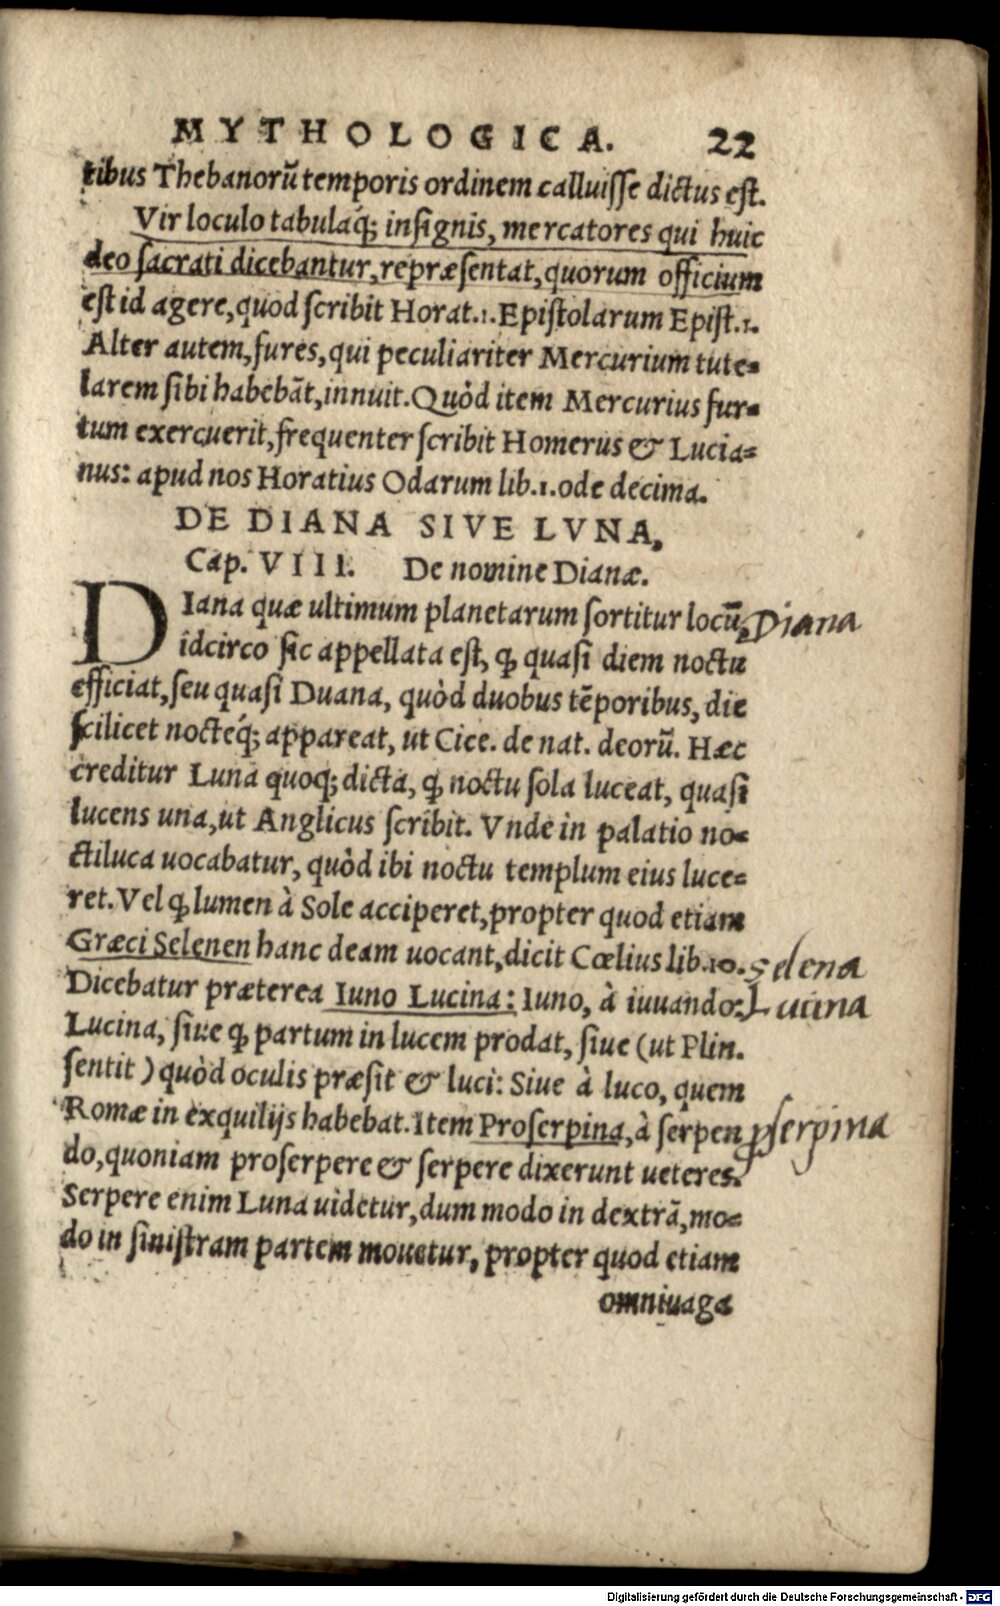 MYTHOLOGICA. 22
tibus Thebanorũ temporis ordinem calluisse dictus est.
Vir loculo tabulaq́; insignis, mercatores qui huic
deo sacrati dicebantur, repræsentat, quorum officium
est id agere, quod scribit Horat. 1. Epistolarum Epist. 1.
Alter autem, fures, qui peculiariter Mercurium tute-
larem sibi habebāt, innuit. Quòd item Mercurius fur-
tum exercuerit, frequenter scribit Homerus & Lucia-
nus: apud nos Horatius Odarum lib. 1. ode decima.
DE DIANA SIVE LVNA,
Cap. VIII. De nomine Dianæ.
DIana quæ ultimum planetarum sortitur locũ, Diana
idcirco sic appellata est, ꝙ quasi diem noctu
efficiat, seu quasi Duana, quòd duobus tēporibus, die
scilicet nocteq́; appareat, ut Cice. de nat. deorũ. Hæc
creditur Luna quoq; dicta, ꝙ noctu sola luceat, quasi
lucens una, ut Anglicus scribit. Vnde in palatio no-
ctiluca uocabatur, quòd ibi noctu templum eius luce-
ret. Vel ꝙ lumen à Sole acciperet, propter quod etiam
Græci Selenen hanc deam uocant, dicit Cœlius lib. 10. Selena
Dicebatur præterea Iuno Lucina: Iuno, à iuuando: Lucina
Lucina, siue ꝙ partum in lucem prodat, siue (ut Plin.
sentit) quòd oculis præsit & luci: Siue à luco, quem
Romæ in exquilijs habebat. Item Proserpina, à serpen ꝓserpina
do, quoniam proserpere & serpere dixerunt ueteres.
Serpere enim Luna uidetur, dum modo in dextrā, mo-
do in sinistram partem mouetur, propter quod etiam
omniuaga
Digitalisierung gefördert durch die Deutsche Forschungsgemeinschaft - DFG